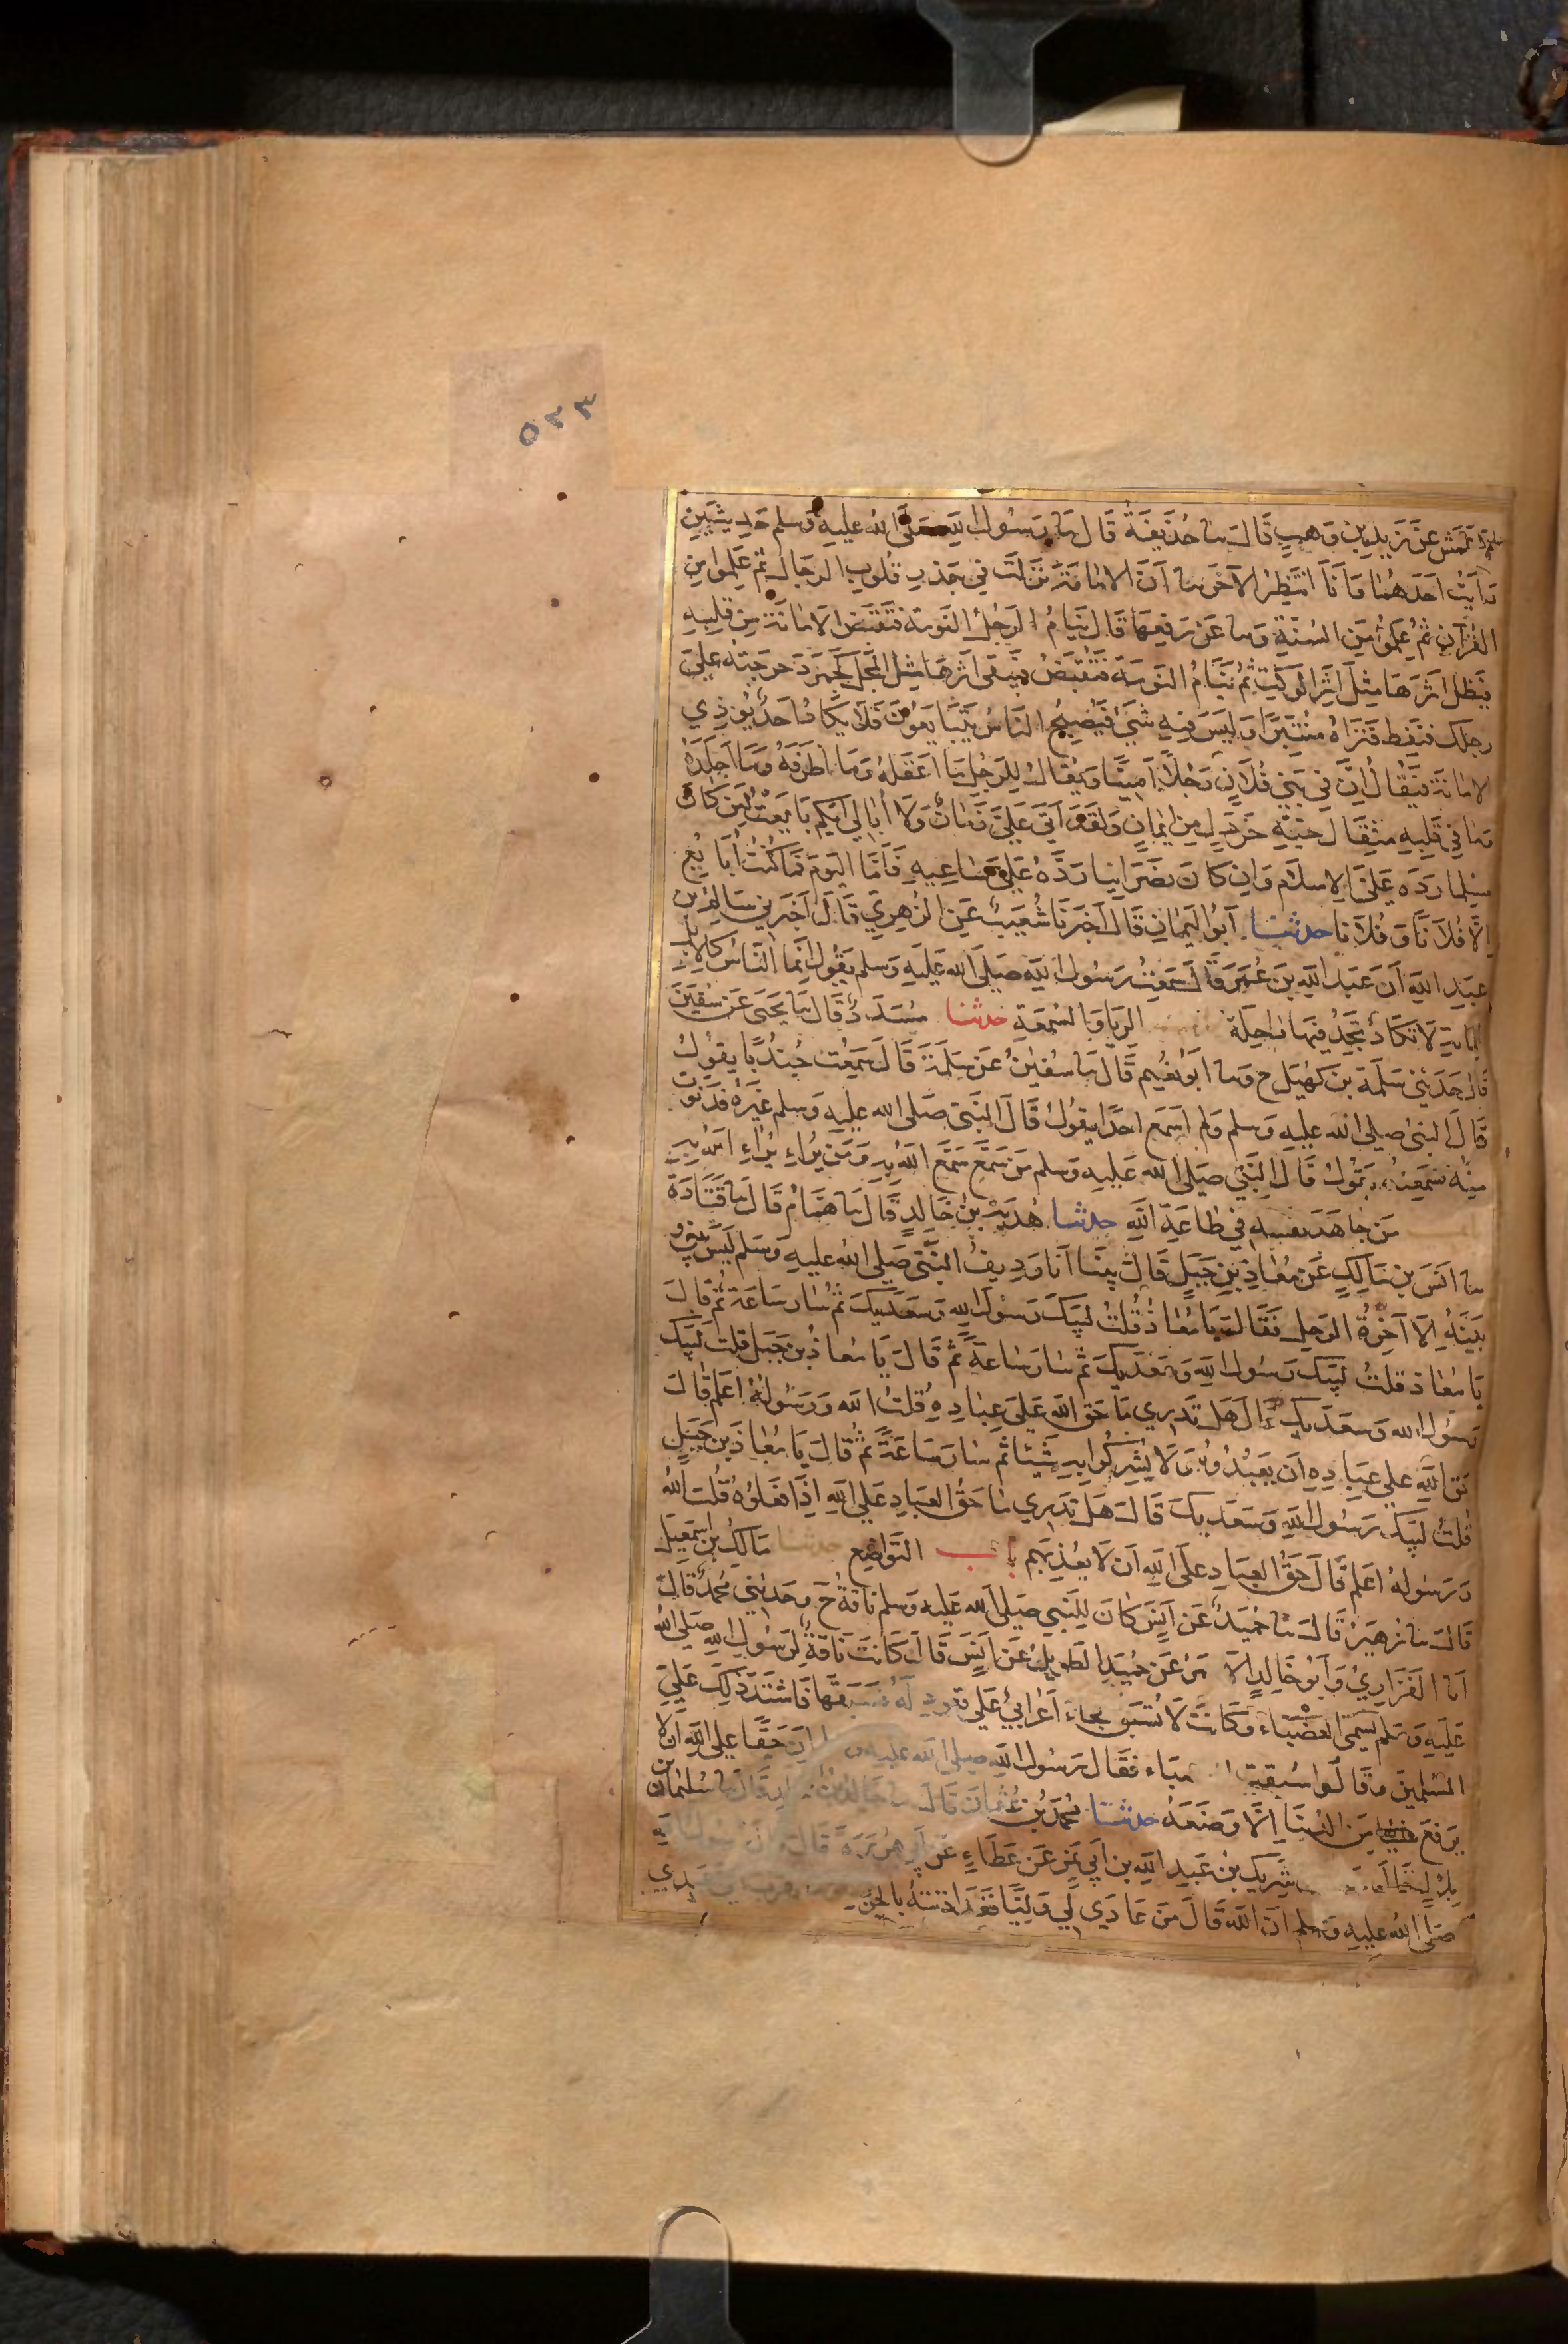 ٥٢٣
الاعمش عن زيد بن وهب قال سا حذيفة قال سا رسول الله صلى الله عليه وسلم حديثين
رأيت احدهما وانا انتظر الآخر سا ان الامانة نزلت في جذر قلوب الرجال ثم علموا من
القرآن ثم علموا من السنة وسا عن رفعها قال ينام الرجل النومة فتقبض الامانة من قلبه
فيظل اثرها مثل اثر الوكت ثم ينام النومة فتقبض فيبقى اثرها مثل المجل كجمر دحرجته على
رجلك فنفط فتراه منتبرا وليس فيه شيء فيصبح الناس يتبايعون فلا يكاد احد يؤدي
الامانة فيقال ان في بني فلان رجلا امينا ويقال للرجل ما اعقله وما اظرفه وما اجلده
وما في قلبه مثقال حبة خردل من ايمان ولقد اتى علي زمان ولا ابالي ايكم بايعت لئن كان
مسلما رده علي الاسلام وان كان نصرانيا رده علي ساعيه فاما اليوم فما كنت ابايع
الا فلانا وفلانا حدثنا ابو اليمان قال اخبرنا شعيب عن الزهري قال اخبرني سالم بن
عبد الله ان عبد الله بن عمر قال سمعت رسول الله صلى الله عليه وسلم يقول انما الناس كالابل
المائة لا تكاد تجد فيها راحلة الريا والسمعة حدثنا مسدد قال سا يحيى عن سفين
قال حدثني سلمة بن كهيل ح وسا ابو نعيم قال سا سفين عن سلمة قال سمعت جندبا يقول
قال النبي صلى الله عليه وسلم ولم اسمع احدا يقول قال النبي صلى الله عليه وسلم غيره فدنوت
منه فسمعته يقول قال النبي صلى الله عليه وسلم من سمع سمع الله به ومن يراءِ يراءِ الله به
من جاهد نفسه في طاعة الله حدثنا هدبة بن خالد قال سا همام قال سا قتادة
سا انس بن مالك عن معاذ بن جبل قال بينا انا رديف النبي صلى الله عليه وسلم ليس بيني و
بينه الا آخرة الرحل فقال يا معاذ قلت لبيك رسول الله وسعديك ثم سار ساعة ثم قال
يا معاذ قلت لبيك رسول الله وسعديك ثم سار ساعة ثم قال يا معاذ بن جبل قلت لبيك
رسول الله وسعديك قال هل تدري ما حق الله على عباده قلت الله ورسوله اعلم قال
حق الله على عباده ان يعبدوه ولا يشركوا به شيئا ثم سار ساعة ثم قال يا معاذ بن جبل
قلت لبيك رسول الله وسعديك قال هل تدري ما حق العباد على الله اذا فعلوه قلت الله
ورسوله اعلم قال حق العباد على الله ان لا يعذبهم باب التواضع حدثنا مالك بن اسمعيل
قال سا زهير قال سا حميد عن انس كان للنبي صلى الله عليه وسلم ناقة ح وحدثني محمد قال
انا الفزاري وابو خالد الاحمر عن حميد الطويل عن انس قال كانت ناقة لرسول الله صلى الله
عليه وسلم تسمى العضباء وكانت لا تسبق فجاء اعرابي على قعود له فسبقها فاشتد ذلك على
المسلمين وقالوا سبقت العضباء فقال رسول الله صلى الله عليه وسلم ان حقا على الله ان لا
يرفع شيئا من الدنيا الا وضعه حدثنا محمد بن عثمان قال سا خالد بن مخلد قال سا سليمان بن
بلال شريك بن عبد الله بن ابي نمر عن عطاء عن ابي هريرة قال
صلى الله عليه وسلم ان الله قال من عادى لي وليا فقد اذنته بالحرب